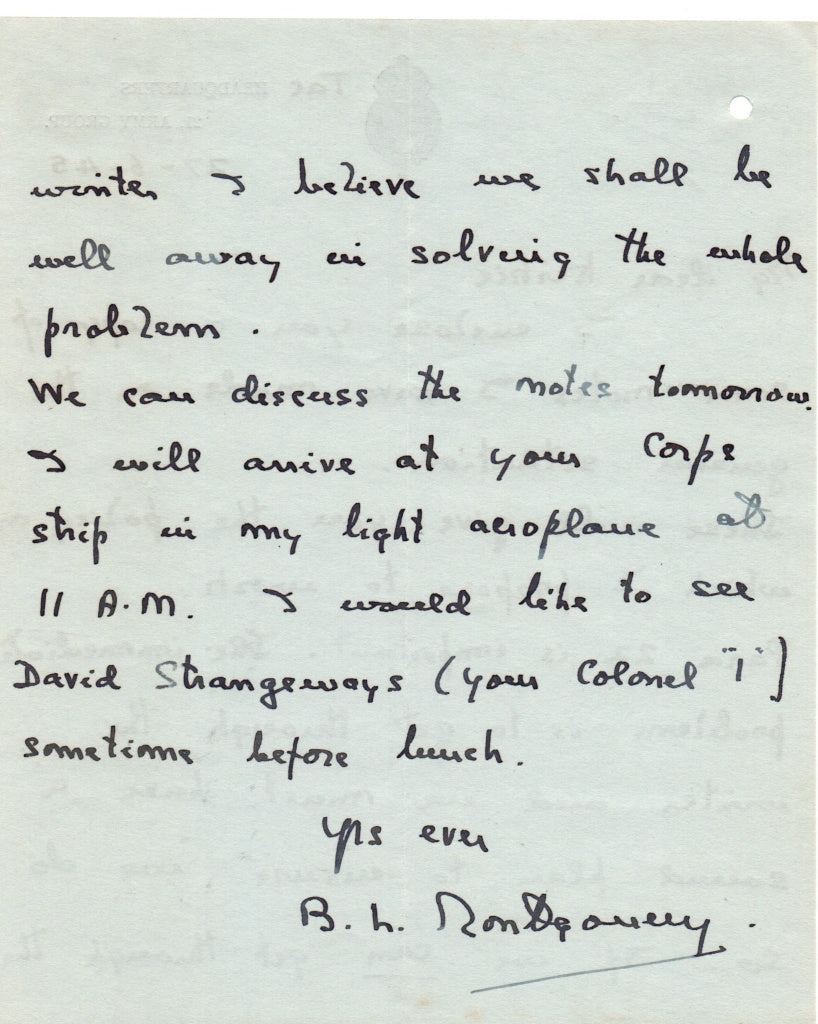 winter I believe we shall be
well away in solving the whole
problem.
We can discuss the notes tomorrow.
I will arrive at your Corps
strip in my light aeroplane at
11 A.M. I would like to see
David Strangeways (your Colonel "I")
sometime before lunch.
Yrs ever
B. L. Montgomery.